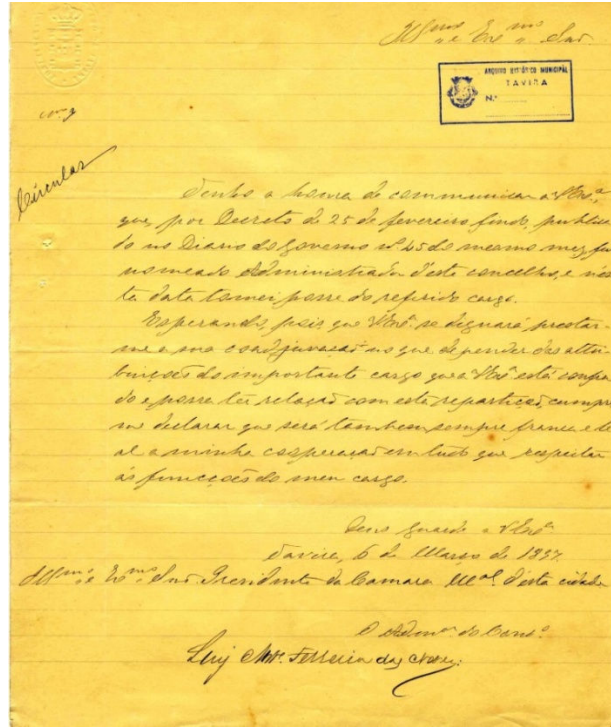 Ill.mo e Ex.mo Snr.
ARQUIVO HISTÓRICO MUNICIPAL
TAVIRA
N.º
Nº 9
Circular
Tenho a honra de communicar a V.Ex.ª
que, por Decreto de 25 de fevereiro findo, publica-
do no Diario do Governo nº 45 do mesmo mez, fui
nomeado Administrador d'este concelho, e nes-
ta data tomei posse do referido cargo.
Esperando, pois que V.Ex.ª se dignará prestar-
me a sua coadjuvação no que depender das attri-
buições do importante cargo que a V.Ex.ª está confia-
do e possa ter relação com esta repartição, cumpre-
me declarar que será tambem sempre franca e le-
al a minha cooperação em tudo que respeitar
ás funcções do meu cargo.
Deus Guarde a V.Ex.ª
Tavira, 6 de Março de 1897.
Ill.mo e Ex.mo Snr. Presidente da Camara M.al d'esta cidade
O Adm.or do Conc.º
Luiz Ferreira das